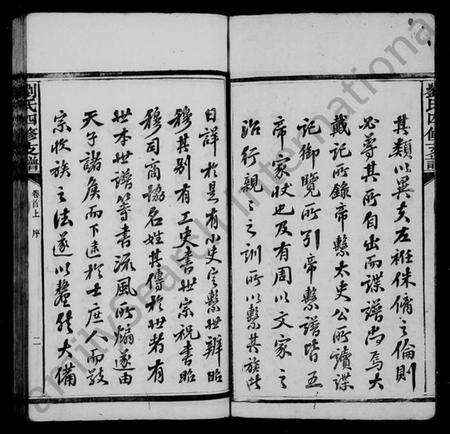 劉氏四修支譜
其類以異夫左袵侏之倫則
必尊其所自出而諜譜尚焉大
戴記所錄帝繫太史公所讀諜
記御覽所引帝繫譜皆五
帝家狀也及有周以文家之
治行親之訓所以繫其族
日詳於是有小史定繫世辨昭
穆其別有工史書世宗祝書昭
穆司商協名姓其傳於世者有
世本世譜等書源流所遂由
天子諸侯而下逮於士庶人而敬
宗收族之法遂以釐然大備
劉氏四修支譜
卷首上 序
二